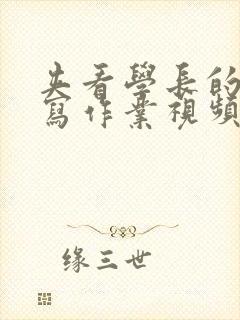 夹看學長的
寫作業視頻
缘三世